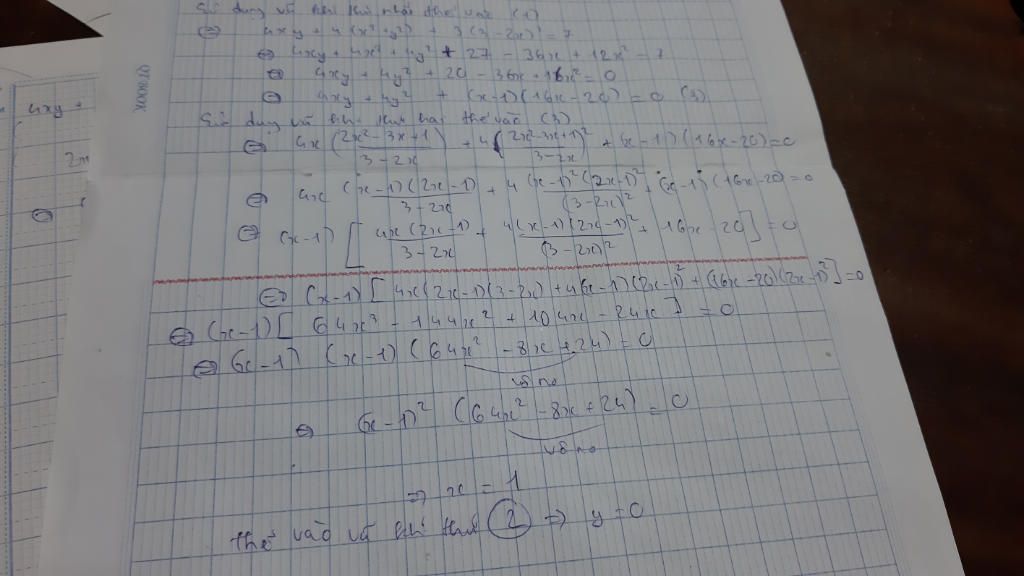 4xy + 4(x² + y²) + 3(3 - 2x)² = 7
⇔ 4xy + 4x² + 4y² + 27 - 36x + 12x² = 7
⇔ 4xy + 4y² + 20 - 36x + 16x² = 0
⇔ 4xy + 4y² + (x-1)(16x-20) = 0 (3)
thế vào (3)
⇔ 4x (2x² - 3x + 1)/(3 - 2x) + 4((2x² - 3x + 1)/(3 - 2x))² + (x-1)(16x-20) = 0
⇔ 4x (x-1)(2x-1)/(3 - 2x) + 4 (x-1)²(2x-1)²/(3 - 2x)² + (x-1)(16x-20) = 0
⇔ (x-1) [4x(2x-1)/(3 - 2x) + 4(x-1)(2x-1)²/(3 - 2x)² + 16x - 20] = 0
⇔ (x-1) [4x(2x-1)(3-2x) + 4(x-1)(2x-1)² + (16x-20)(2x-1)²] = 0
⇔ (x-1) [64x³ - 144x² + 104x - 24x] = 0
⇔ (x-1) (x-1) (64x² - 8x + 24) = 0
vô no
⇔ (x-1)² (64x² - 8x + 24) = 0
vô no
⇒ x = 1
thế vào vế thứ 2 ⇒ y = 0
4xy +